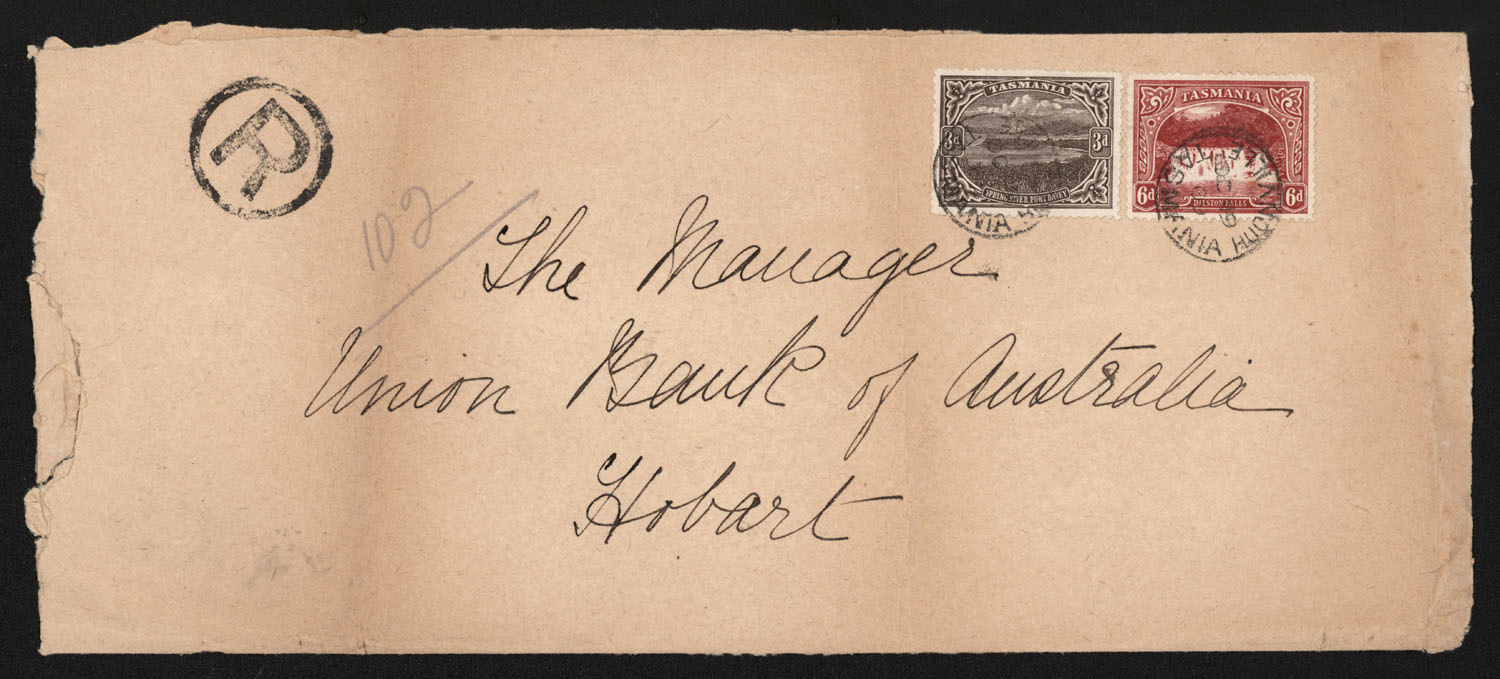 R
102/
TASMANIA
3d 3d
SPRING RIVER PORT DAVEY
TASMANIA
6d 6d
DILSTON FALLS
The Manager
Union Bank of Australia
Hobart